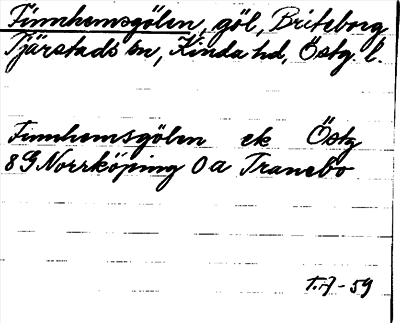 Finnhemsgölen, göl, Briteborg
Tjärstads sn, Kinda hd, Östg. l.
Finnhemsgölen ek Östg
8G Norrköping 0a Tranebo
T.A - 59